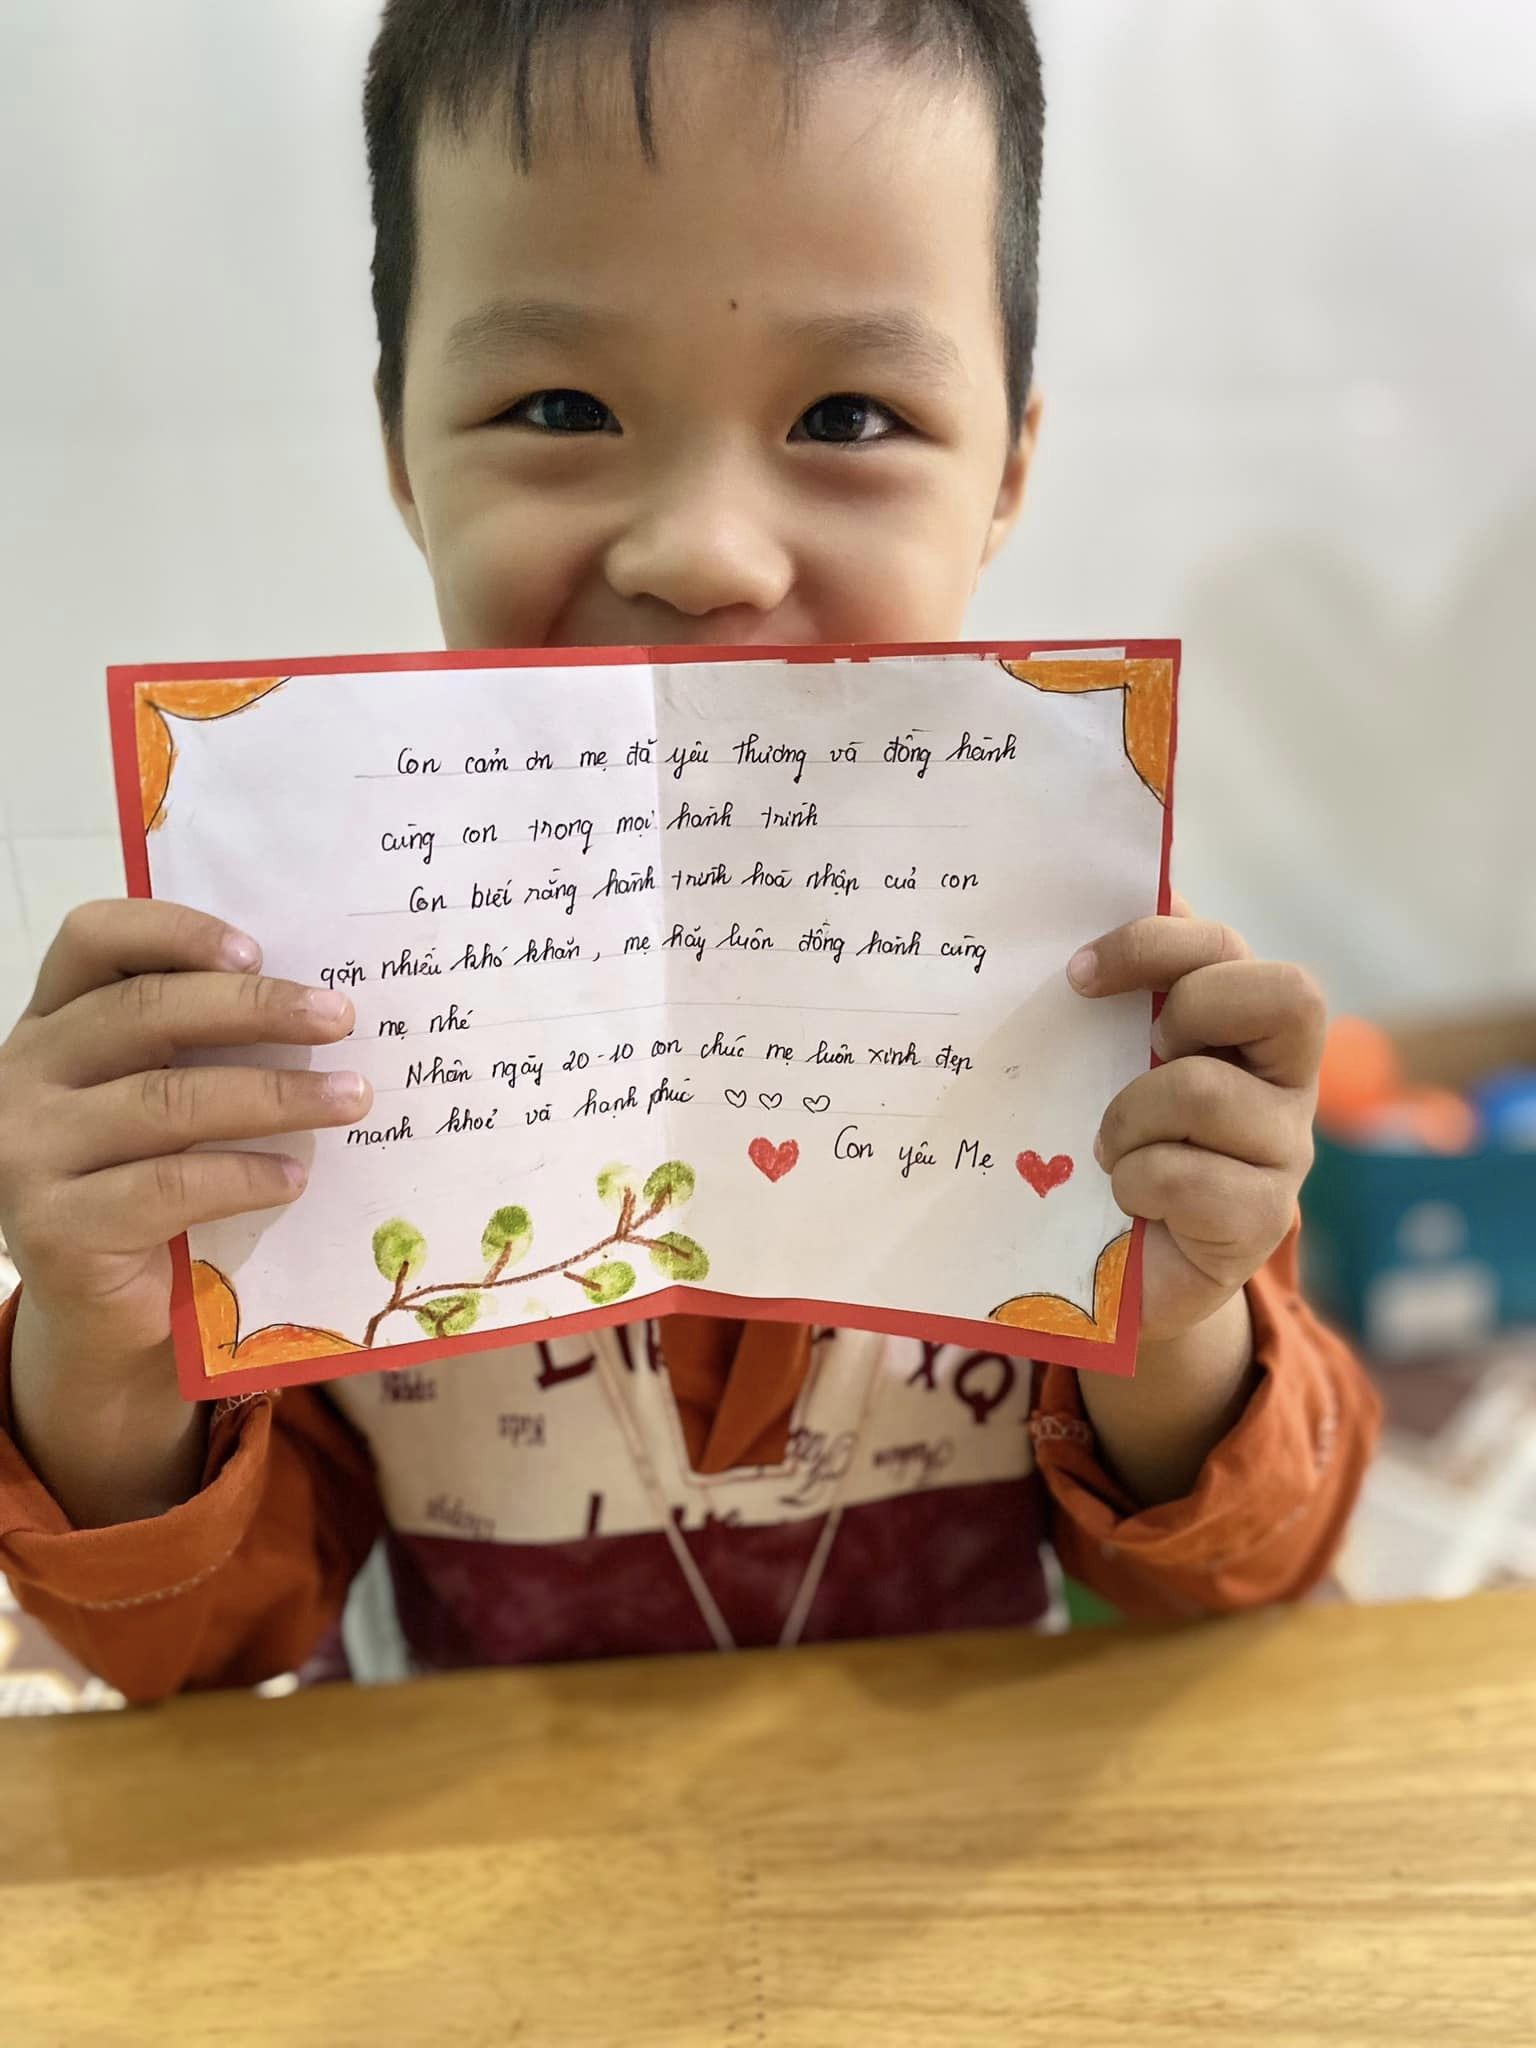 Con cảm ơn mẹ đã yêu thương và đồng hành
cùng con trong mọi hành trình
Con biết rằng hành trình hoà nhập của con
gặp nhiều khó khăn, mẹ hãy luôn đồng hành cùng
mẹ nhé
Nhân ngày 20-10 con chúc mẹ luôn xinh đẹp
mạnh khoẻ và hạnh phúc ♡ ♡ ♡
Con yêu Mẹ
Kids